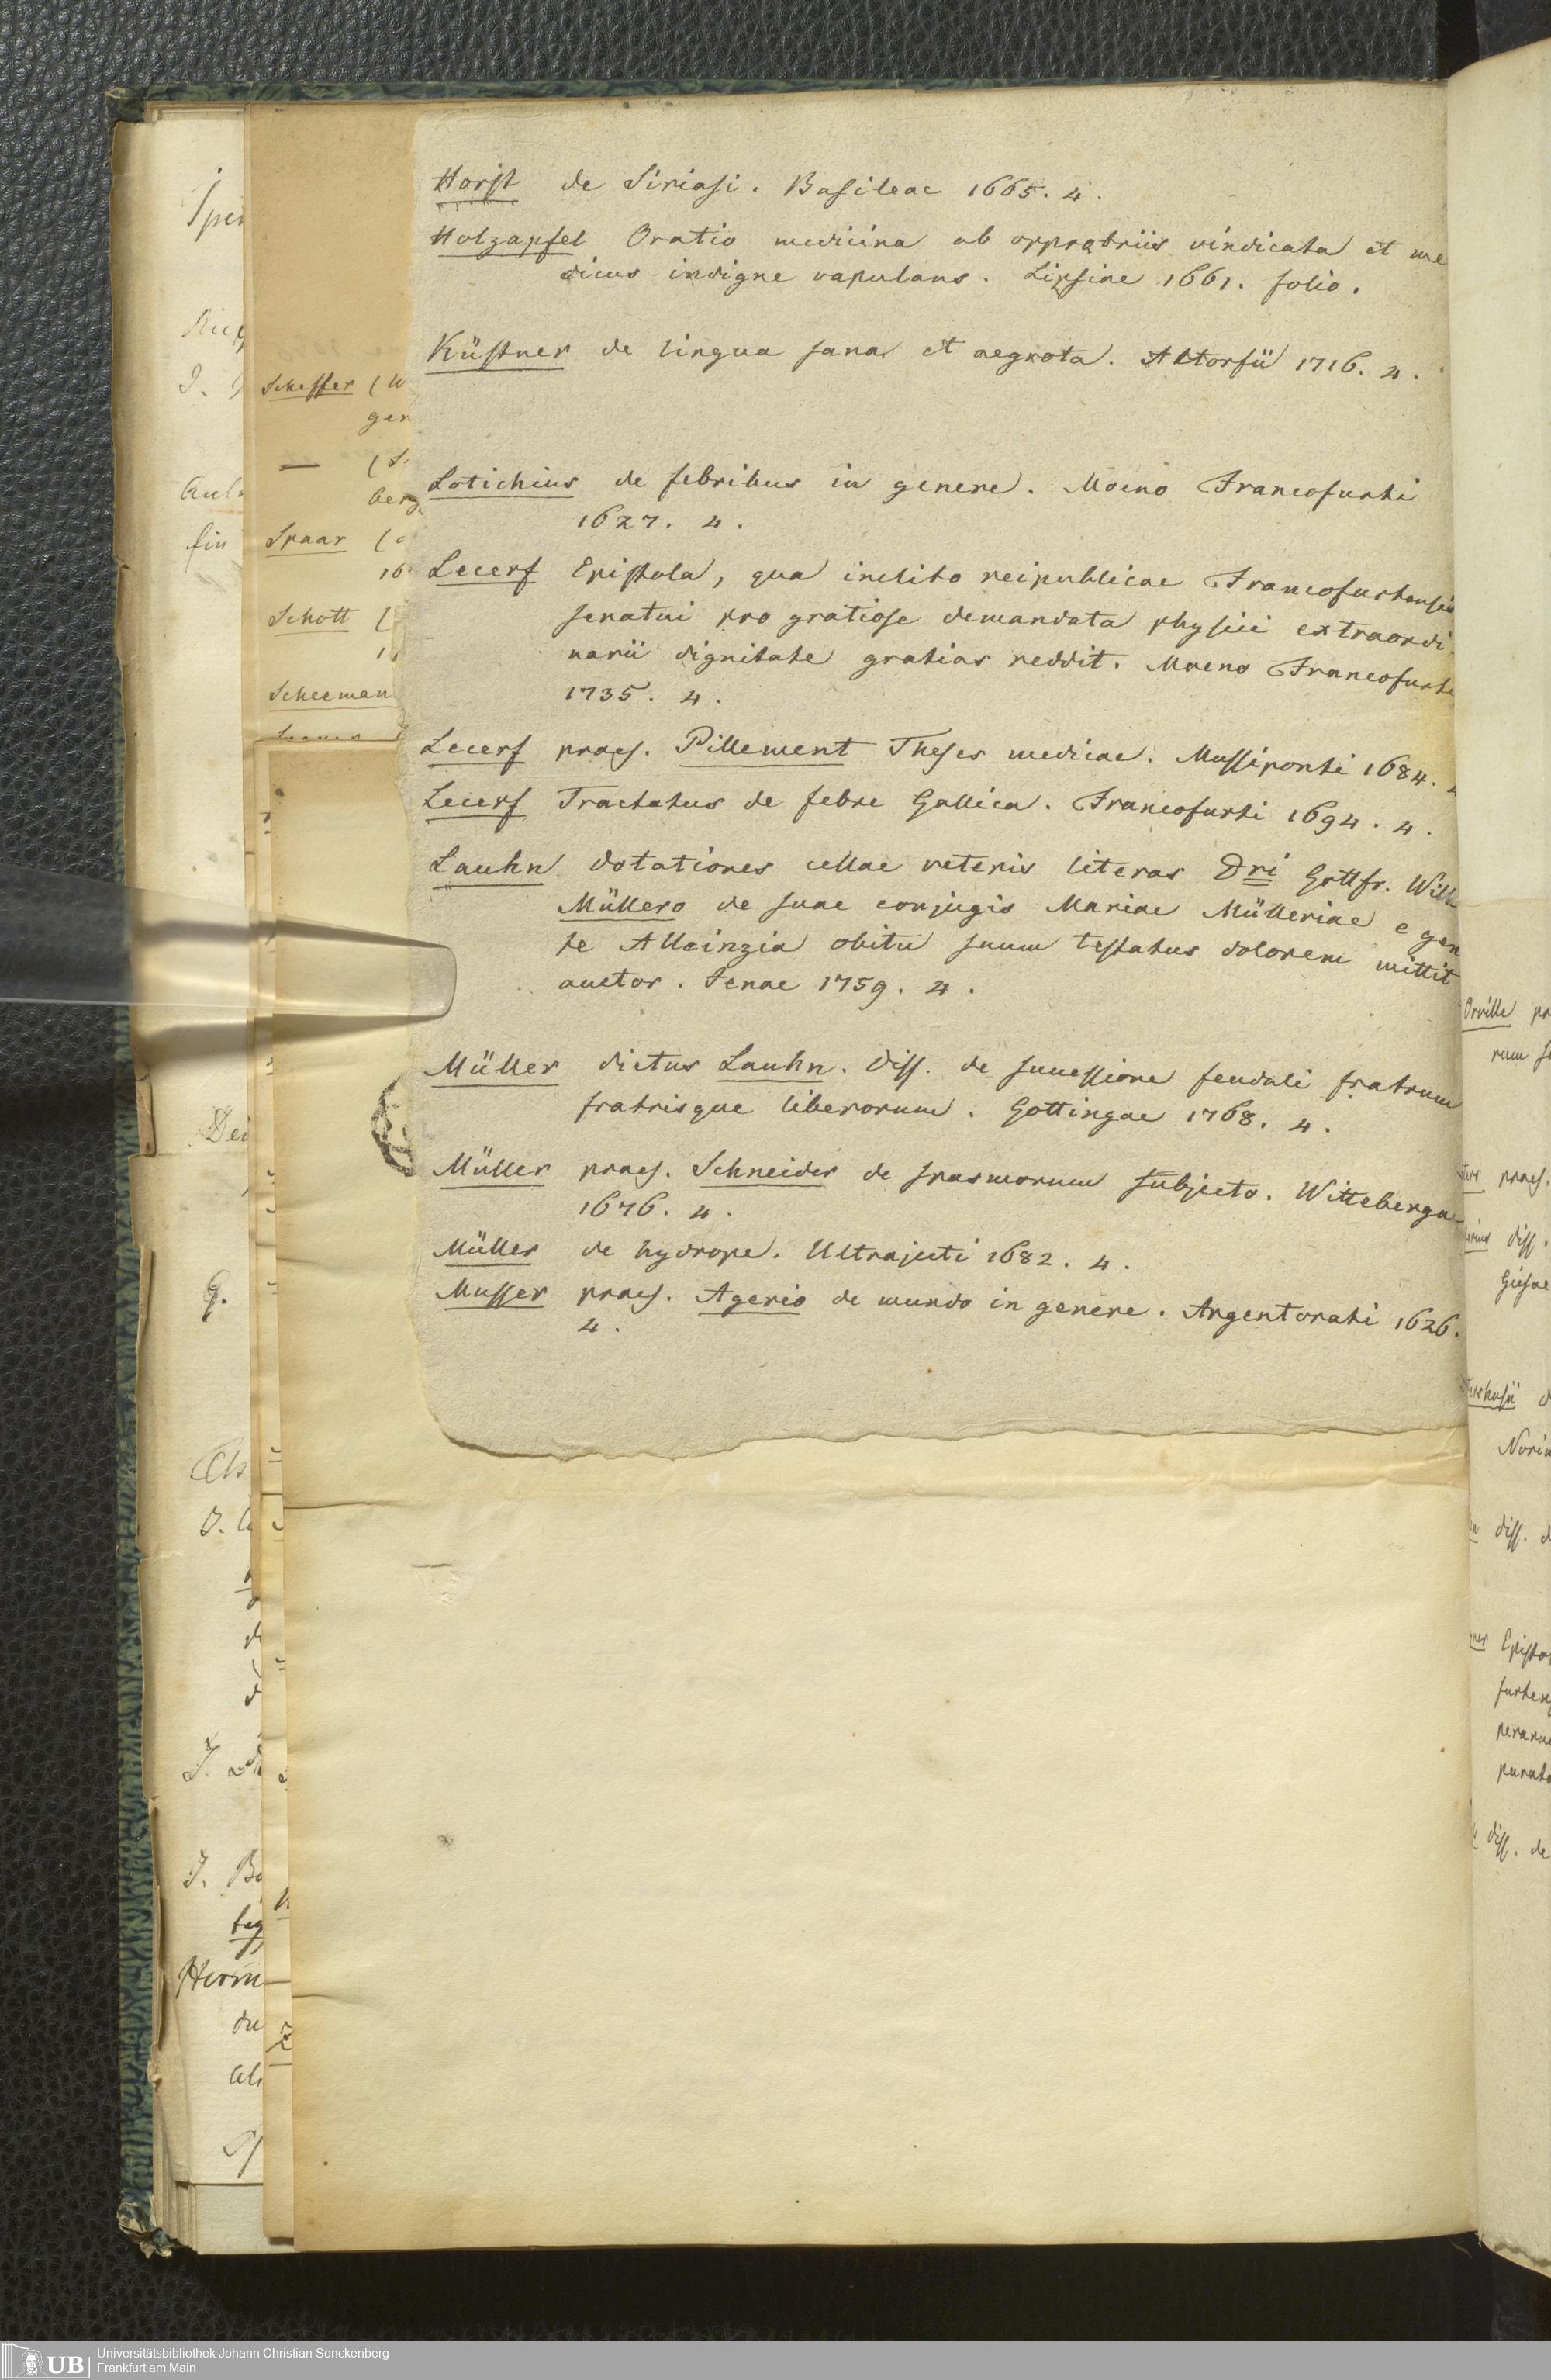 Horst de Siriasi. Basileae 1665. 4.
Holzapfel Oratio medicina ab opprobriis vindicata et me
dicus indigne vapulans. Lipsiae 1661. folio.
Küstner de lingua sana et aegrota. Altorfii 1716. 4.
Lotichius de febribus in genere. Moeno Francofurti
1627. 4.
Lecerf Epistola, qua inclito reipublicae Francofurtensis
senatui pro gratiose demandata physici extraordi
narii dignitate gratias reddit. Moeno Francofurti
1735. 4.
Lecerf praes. Pillement Theses medicae. Mussiponti 1684. 4
Lecerf Tractatus de febre Gallica. Francofurti 1694. 4.
Lauhn dotationes cellae veteris literas Dri Gottfr. Wilh
Müllero de suae conjugis Mariae Mülleriae e gen
te obitu suum testatus dolorem mittit
auctor. Jenae 1759. 4.
Müller dictus Lauhn. Diss. de successione feudali fratrum
fratrisque liberorum. Gottingae 1768. 4.
Müller praes. Schneider de spasmorum subjecto. Wittebergae
1676. 4.
Müller de hydrope. Ultrajecti 1682. 4.
Musser praes. Agerio de mundo in genere. Argentorati 1626.
4.
Scheffer
gen
berg
Spaar
16
Schott
Scheeman
Orville
praes.
diss.
Giesae
diss.
diss. de
UB
Universitätsbibliothek Johann Christian Senckenberg
Frankfurt am Main